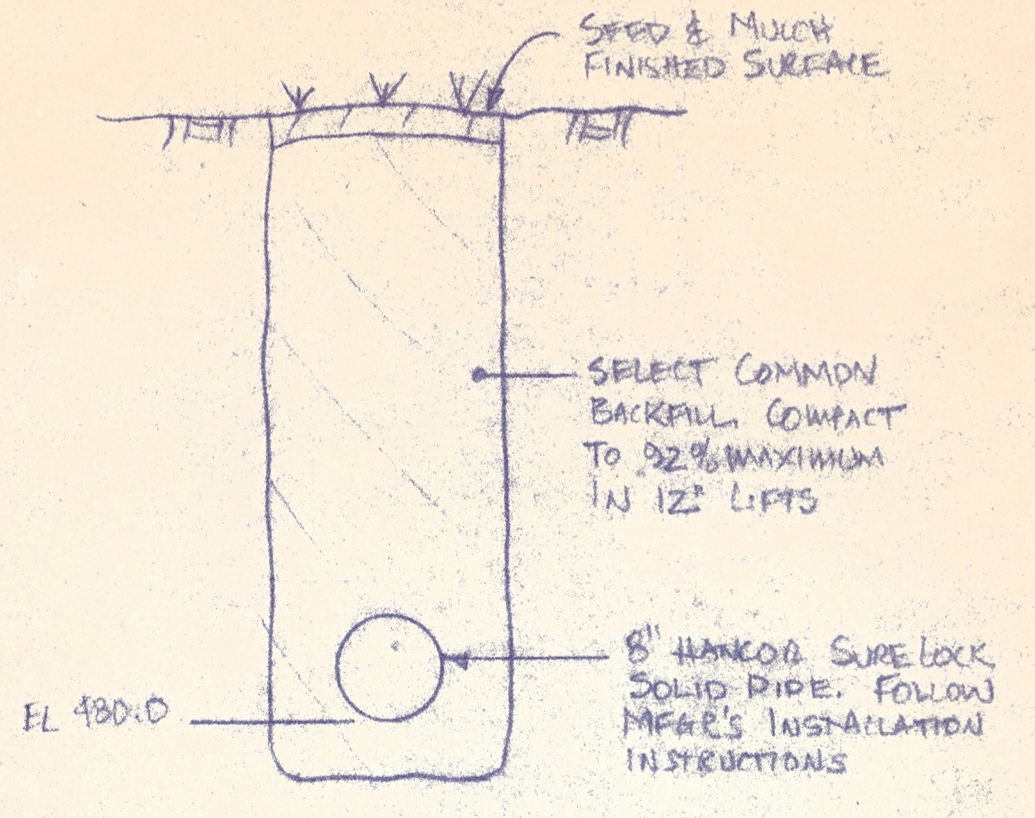 SEED & MULCH
FINISHED SURFACE
SELECT COMMON
BACKFILL. COMPACT
TO 92% MAXIMUM
IN 12" LIFTS
8" HANCOR SURELOCK
SOLID PIPE. FOLLOW
MFGR'S INSTALLATION
INSTRUCTIONS
EL 480.0